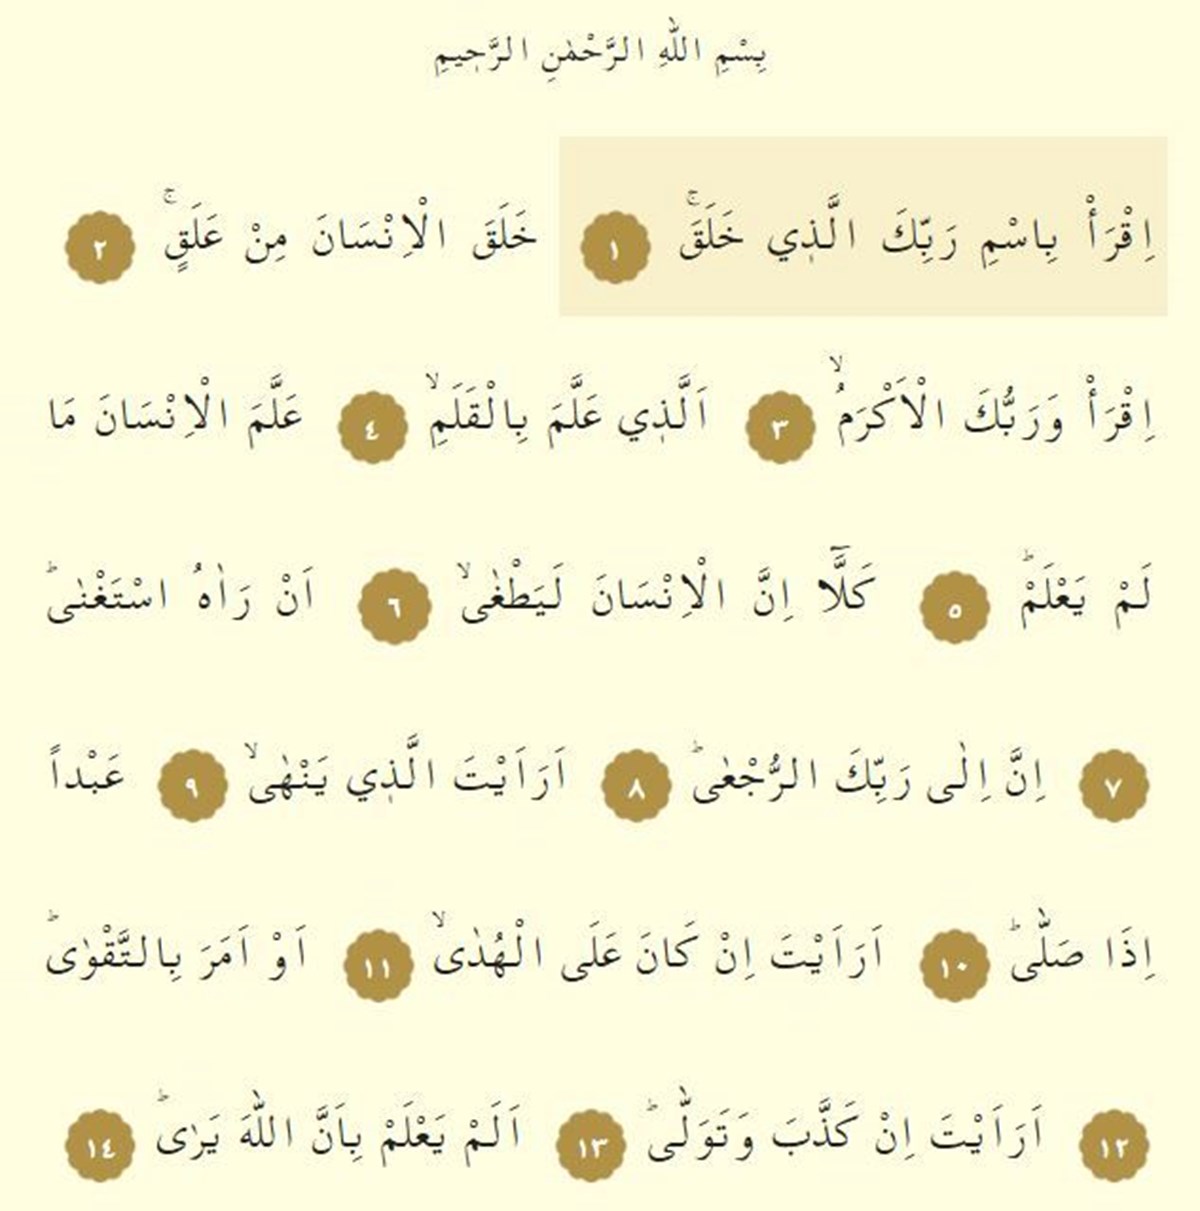 بِسْمِ اللّٰهِ الرَّحْمٰنِ الرَّح۪يمِ
اِقْرَأْ بِاسْمِ رَبِّكَ الَّذ۪ي خَلَقَۚ ١ خَلَقَ الْاِنْسَانَ مِنْ عَلَقٍۚ ٢
اِقْرَأْ وَرَبُّكَ الْاَكْرَمُۙ ٣ اَلَّذ۪ي عَلَّمَ بِالْقَلَمِۙ ٤ عَلَّمَ الْاِنْسَانَ مَا
لَمْ يَعْلَمْؕ ٥ كَلَّٓا اِنَّ الْاِنْسَانَ لَيَطْغٰىۙ ٦ اَنْ رَاٰهُ اسْتَغْنٰىؕ
٧ اِنَّ اِلٰى رَبِّكَ الرُّجْعٰىؕ ٨ اَرَاَيْتَ الَّذ۪ي يَنْهٰىۙ ٩ عَبْداً
اِذَا صَلّٰىؕ ١٠ اَرَاَيْتَ اِنْ كَانَ عَلَى الْهُدٰىۙ ١١ اَوْ اَمَرَ بِالتَّقْوٰىؕ
١٢ اَرَاَيْتَ اِنْ كَذَّبَ وَتَوَلّٰىؕ ١٣ اَلَمْ يَعْلَمْ بِاَنَّ اللّٰهَ يَرٰىؕ ١٤